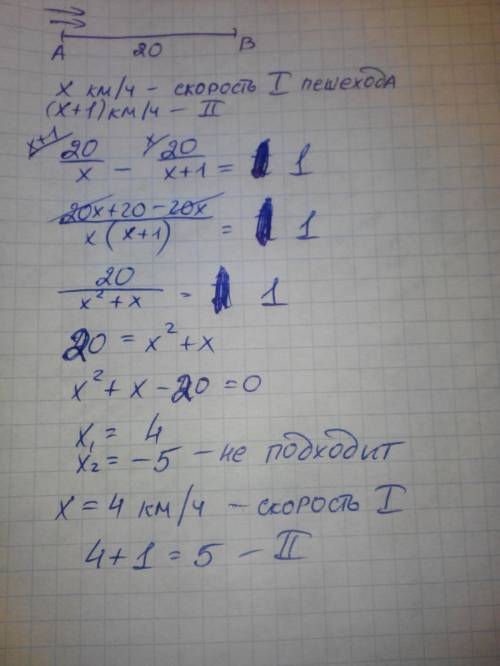 A 20 B
x км/ч – скорость I пешехода
(x+1) км/ч – II
x+1/ 20/x – x/ 20/(x+1) = 1
(20x+20–20x)/(x(x+1)) = 1
20/(x²+x) = 1
20 = x²+x
x²+x–20=0
x₁ = 4
x₂ = –5 – не подходит
x = 4 км/ч – скорость I
4+1=5 – II